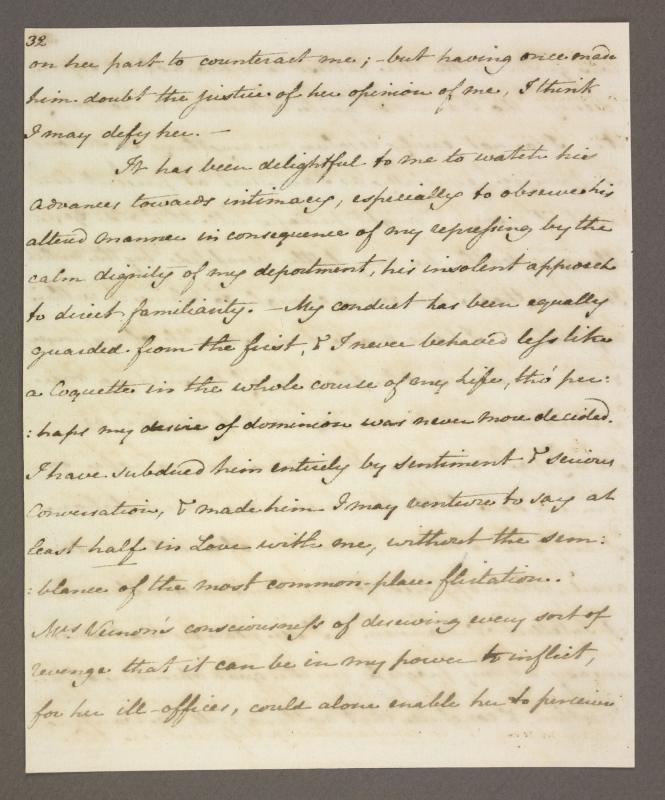 32
on her part to counteract me; - but having once made
him doubt the justice of her opinion of me, I think
I may defy her. —
It has been delightful to me to watch his
advances towards intimacy, especially to observe his
altered manner in consequence of my repressing by the
calm dignity of my deportment, his insolent approach
to direct familiarity. — My conduct has been equally
guarded from the first, & I never behaved less like
a Coquette in the whole course of my Life, tho' per:
:haps my desire of dominion was never more decided.
I have subdued him entirely by sentiment & serious
Conversation, & made him I may venture to say at
least half in Love with me, without the sem:
:blance of the most common-place flirtation.
Mrs Vernon's consciousness of deserving every sort of
revenge that it can be in my power to inflict,
for her ill-offices, could alone enable her to perceive